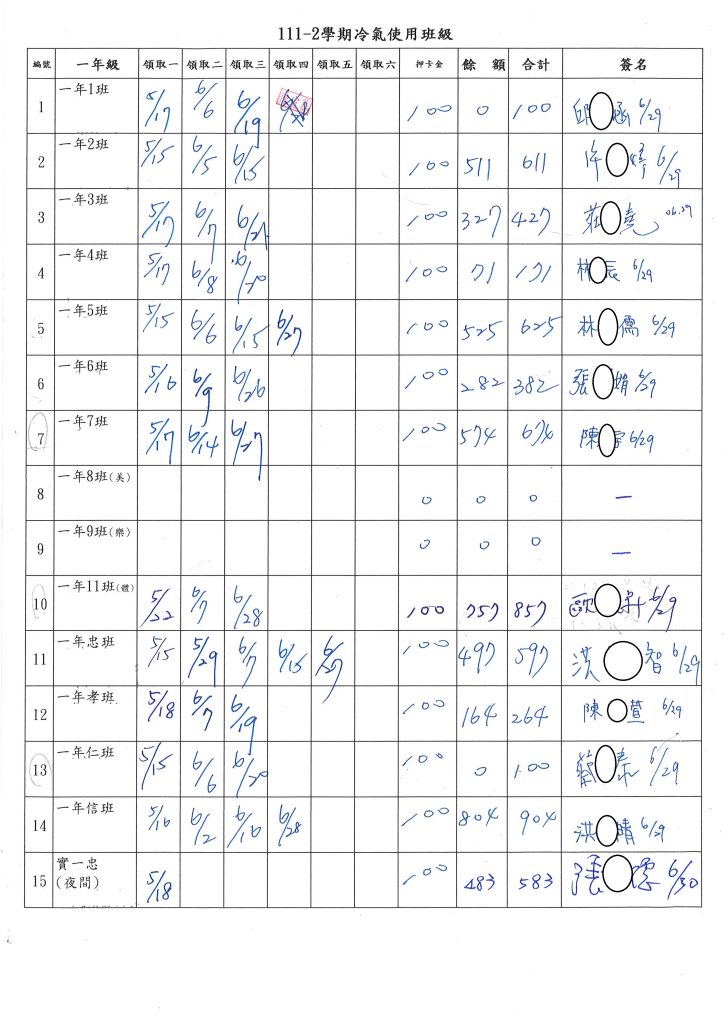 111-2學期冷氣使用班級
編號 一年級 領取一 領取二 領取三 領取四 領取五 領取六 押卡金 餘額 合計 簽名
1 一年1班 5/17 6/6 6/19 100 0 100 邱 涵 6/29
2 一年2班 5/15 6/5 6/15 100 511 611 許 婷 6/29
3 一年3班 5/17 6/7 6/21 100 327 427 莊 堯 06.29
4 一年4班 5/17 6/8 6/20 100 71 171 林 辰 6/29
5 一年5班 5/15 6/6 6/15 6/27 100 525 625 林 儒 6/29
6 一年6班 5/16 6/9 6/26 100 282 382 張 娟 6/29
7 一年7班 5/17 6/14 6/27 100 574 674 陳 宇 6/29
8 一年8班(美) 0 0 0 —
9 一年9班(樂) 0 0 0 —
10 一年11班(體) 5/22 6/7 6/28 100 757 857 歐 6/29
11 一年忠班 5/15 5/29 6/7 6/15 6/27 100 497 597 洪 智 6/29
12 一年孝班 5/18 6/7 6/19 100 164 264 陳 萱 6/29
13 一年仁班 5/15 6/6 6/20 100 0 100 6/29
14 一年信班 5/16 6/2 6/16 6/28 100 804 904 洪 晴 6/29
15 實一忠(夜間) 5/18 100 483 583 張 6/30